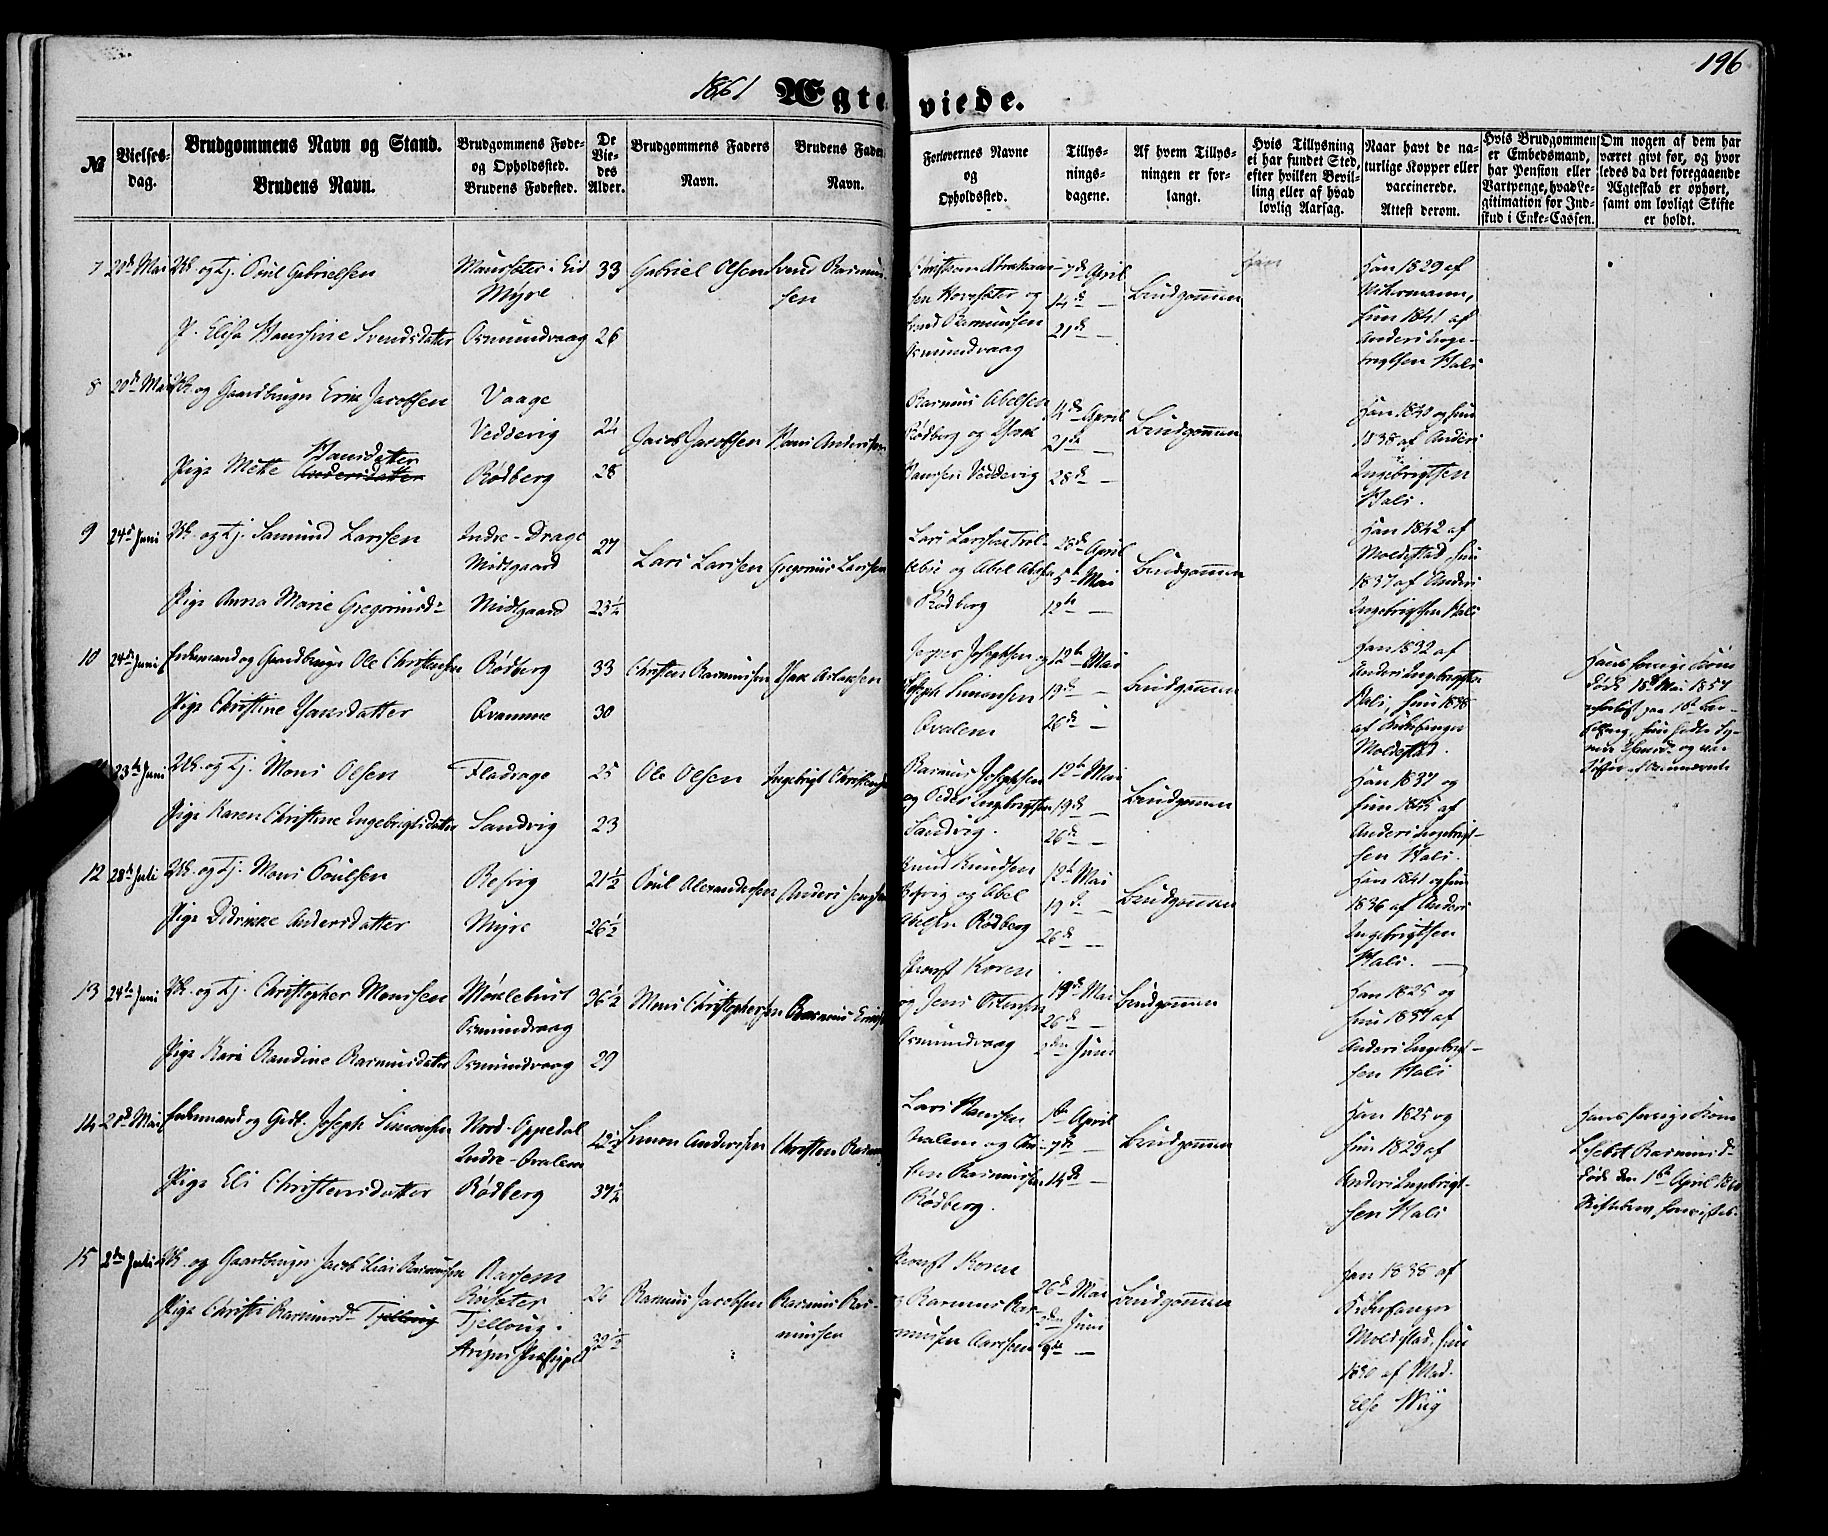 196
1861 Ægteviede.
№
Vielses-
dag.
Brudgommens Navn og Stand.
Brudens Navn.
Brudgommens Føde-
og Opholdssted.
Brudens Fødested.
De
Vie-
des
Alder.
Brudgommens Faders
Navn.
Brudens Faders
Navn.
Forlovernes Navne
og
Opholdssted.
Tillys-
nings-
dagene.
Af hvem Tillys-
ningen er for-
langt.
Hvis Tillysning
ei har fundet Sted,
efter hvilken Bevil-
ling eller af hvad
lovlig Aarsag.
Naar havt de na-
turlige Kopper eller
vaccinerede.
Attest derom.
Hvis Brudgommen
er Embedsmand,
har Pension eller
Vartpenge, hvad Le-
gitimation for Ind-
skud i Enke-Cassen.
Om nogen af dem har
været givt før, og hvor
ledes da det foregaaende
Ægteskab er ophørt,
samt om lovligt Skifte
er holdt.
7 20de Mai Uk. og Tj. Poul Gabrielsen
P. Elisa Hansine Svendsdatter
Maurseter i Eid
Myre
Osmundvaag
33
26
Gabriel Olsen
Svend Rasmus-
sen
Christian Abraham-
sen Hovseter og
Svend Rasmussen
Osmundvaag
7de April
14de —
21de —
Brudgommen
Han 1829 af
Hun 1841 af
Anders Inge-
brigtsen Hals
8 20de Mai Uk. og Gaardbruger Erik Jacobsen
Pige Mette Hansdatter
Andersdatter
Vaage
Vedvig
Rødberg
24
28
Jacob Jacobsen
Hans Andersen
Rasmus Abelsen
Rødberg og Isak
Hanssen Veddevig
14de April
21de —
28de —
Brudgommen
Han 1840 og hun
1838 af Anders
Ingebrigtsen
Hals.
9 24de Juni Uk. og Tj. Samund Larsen
Pige Anna Marie Gregoriusd:
Indre-Drage
Midtgaard
Midtgaard
27
23½
Lars Larsen
Gregorius Larsen
Lars Larsen Trol-
lebø og Abel Abels.
Rødberg
28de April
5te Mai
12te —
Brudgommen
Han 1842 af
Moldestad, hun
1837 af Anders
Ingebrigtsen Hals
10 24de Juni Enkemand og Gaardbruger Ole Christensen
Pige Christine Isaksdatter
Rødberg
Qvamme
33
30
Christen Rasmussen
Isak Aslaksen
Jesper Josephsen og
Joseph Simonsen
Qvalem
12te Mai
19de —
26de —
Brudgommen
Han 1832 af
Anders Ingebrigtsen
Hals, hun 1838
af Kirkesanger
Moldestad.
Hans forrige Kone
døde 18de Mai 1857
23de Juni Uk. og Tj. Mons Olsen
Pige Karen Christine Ingebrigtsdatter
Fladrage
Sandvig
25
23
Ole Olsen
Ingebrigt Christensen
Rasmus Josephsen
og Peder Ingebrigtsen
Sandvig.
12te Mai
19de —
26de —
Brudgommen
Han 1837 og
hun 1845 af
Anders Ingebrigt-
sen Hals.
12 28de Juli Uk. og Tj. Mons Poulsen
Pige Didrikke Andersdatter
Refvig
Myre
21½
26½
Poul Alexandersen
Anders Jensen
Knud Knudsen
Refvig og Abel
Abelsen Rødberg
12te Mai
19de —
26de —
Brudgommen
Han 1841 og hun
1836 af Anders
Ingebrigtsen
Hals. —
13 24de Juni Uk. og Tj. Christopher Monssen
Pige Kari Randine Rasmusdatter
Møklebust
Osmundvaag
Osmundvaag
36½
29
Mons Christophersen
Rasmus Eriksen
Provst Koren
og Jens Ottersen
Osmundvaag
19de Mai
26de —
2den Juni
Brudgommen
Han 1825 og
hun 1837 af
Anders Ingebrigt-
sen Hals
14 20de Mai Enkemand og Grdb. Joseph Simonsen
Pige Eli Christensdatter
Nord-Oppedal
Indre-Qvalem
Rødberg
42½
37½
Simon Anderssen
Christen Rasmus
Lars Hanssen
Qvalem og Chri-
sten Rasmussen
Rødberg.
1ste April
7de —
14de —
Brudgommen
Han 1825 og
hun 1829 af
Anders Ingebrigt-
sen Hals
Hans forrige Kone
Lisebet Rasmusd.
døde den 1ste April 1860
15 2den Juli Uk. og Gaardbruger Jacob Elias Rasmussen
Pige Christi Rasmusd. Tjelloug
Aarsem
Rosseter
Tjelloug.
26
39½
Rasmus Jacobsen
Rasmus Ras-
mussen
Provst Koren
og Rasmus Ras-
mussen Aarsem
26de Mai
2den Juni
9de —
Brudgommen
Han 1838 af
Kirkesanger
Moldestad, hun
1830 af Mad.
Else Wiig